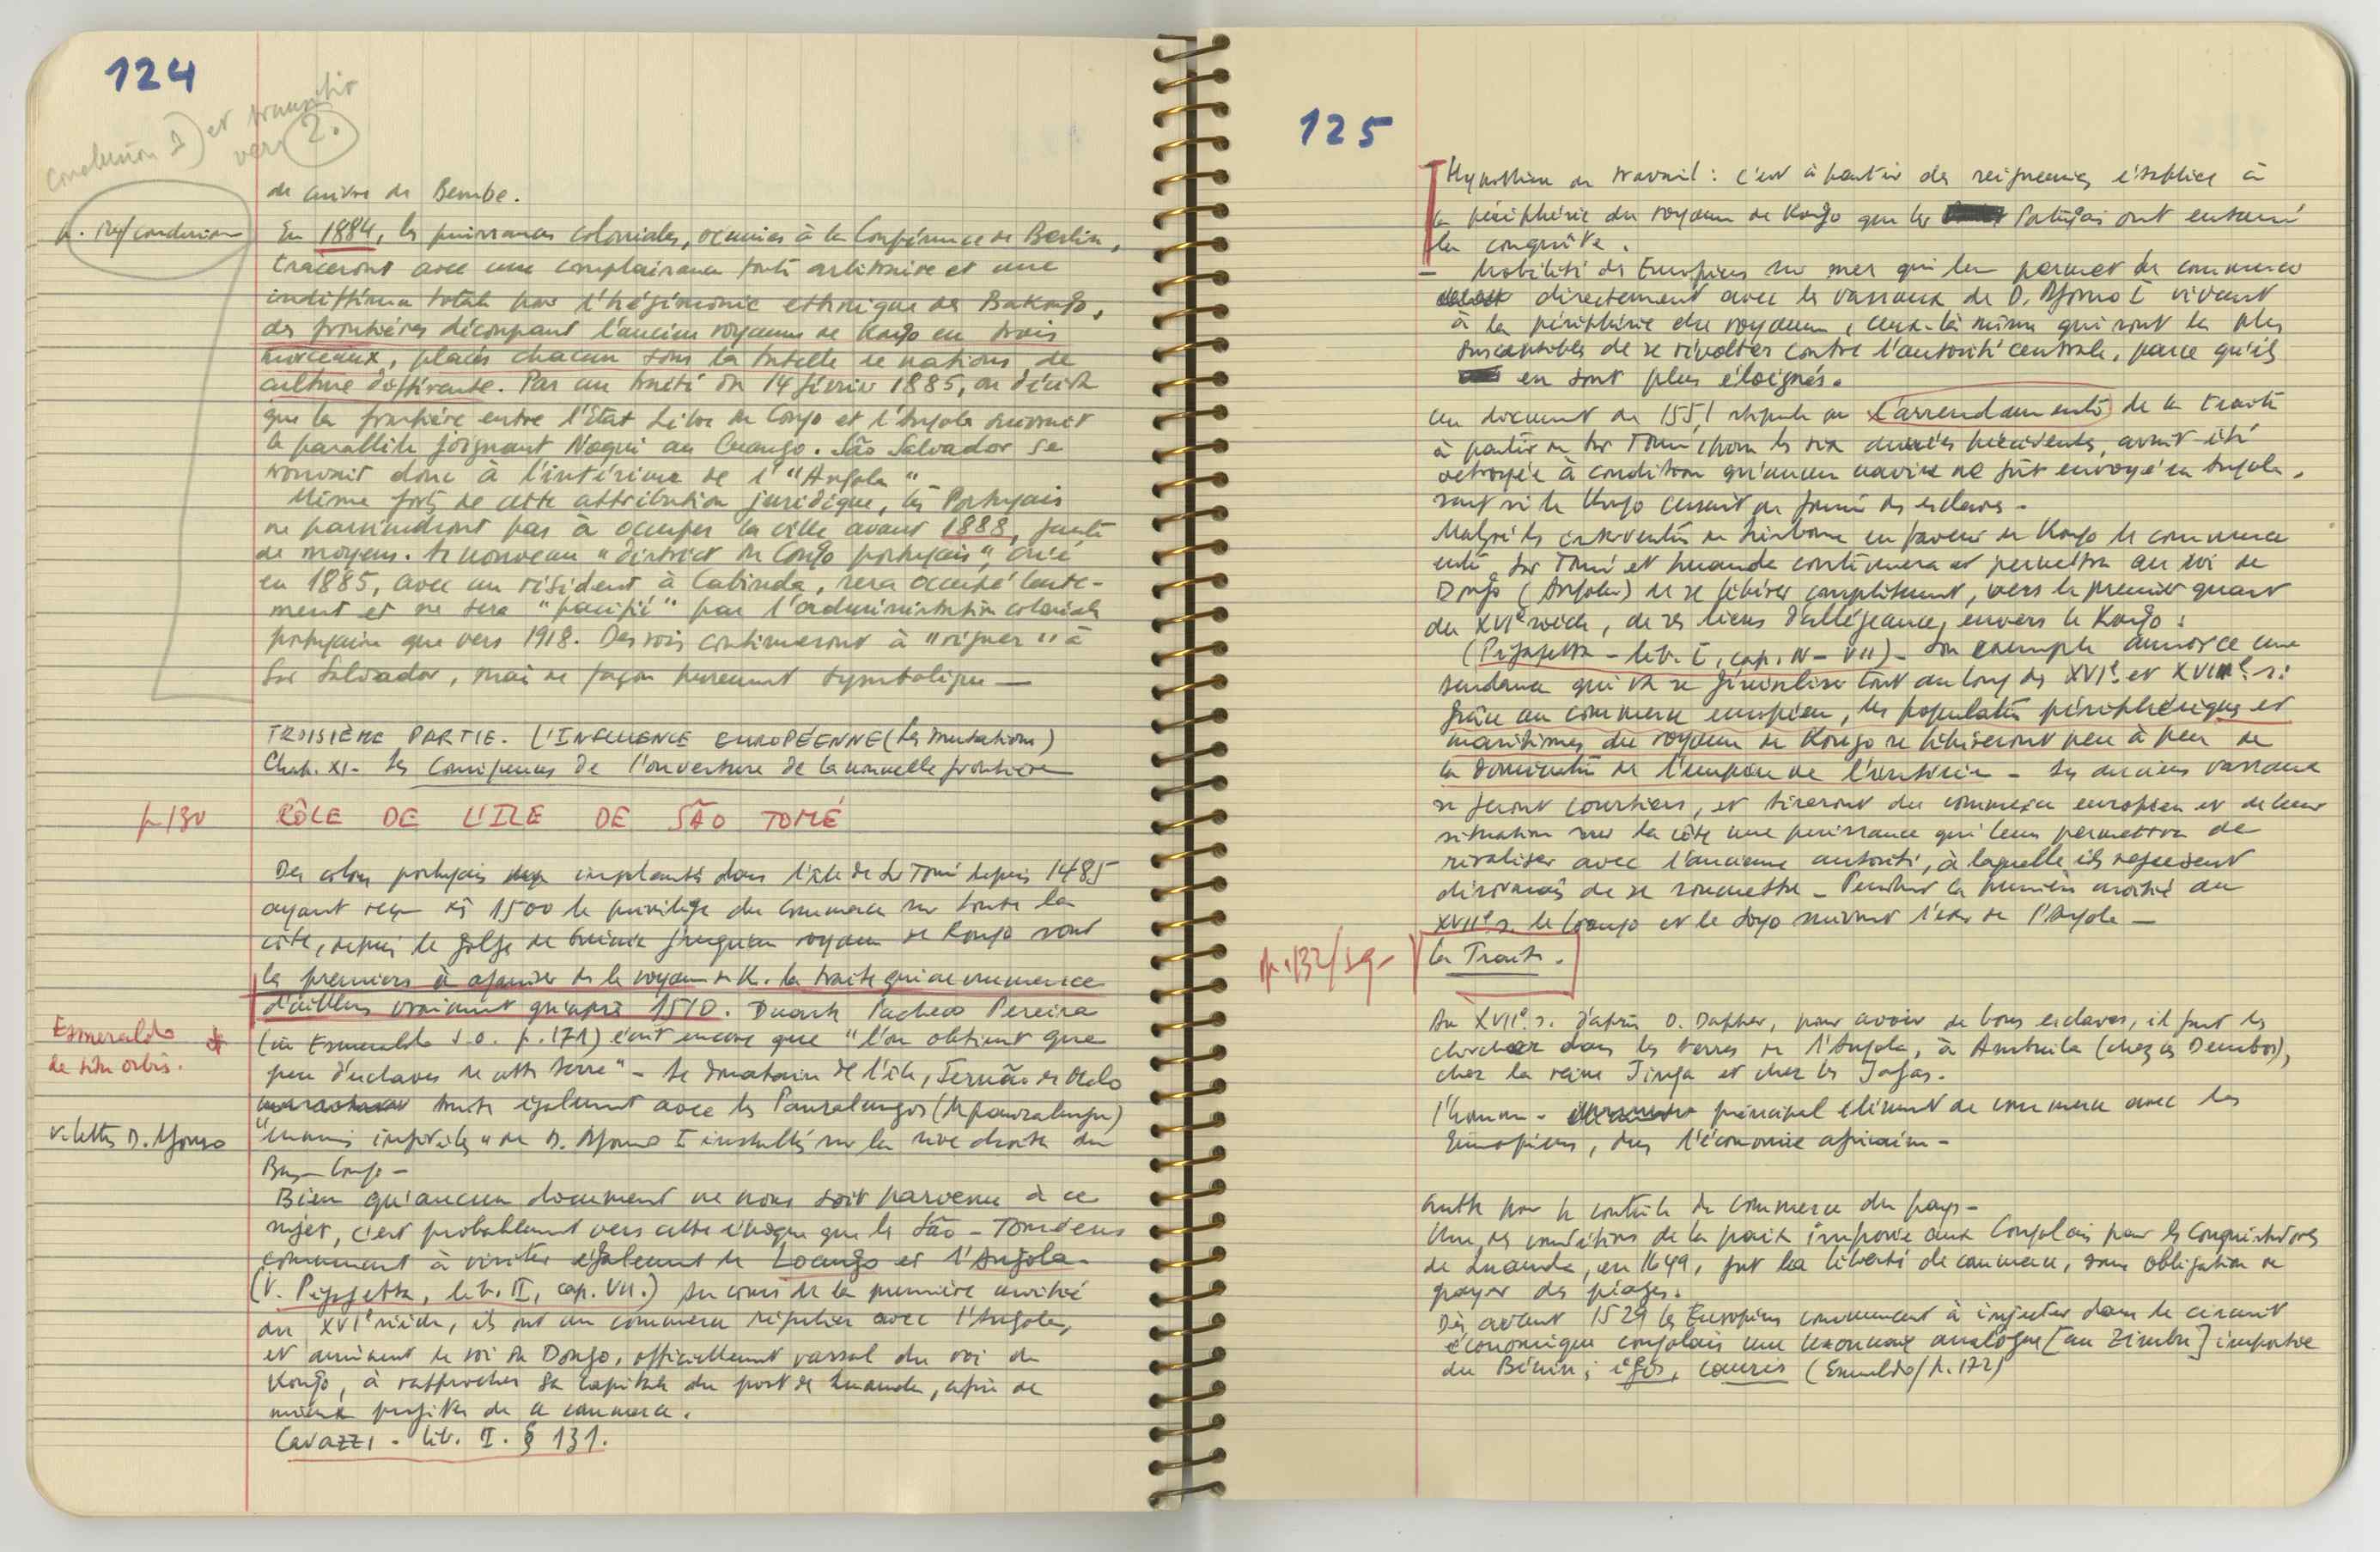 124
conclusion 1) et transition
vers 2.
de cuivre de Bembe.
p. 117/conclusion
En 1884, les puissances coloniales, réunies à la Conférence de Berlin,
traceront avec une complaisance toute arbitraire et une
indifférence totale pour l'hégémonie ethnique des Bakongo,
des frontières découpant l'ancien royaume de Kongo en trois
morceaux, placés chacun sous la tutelle de nations de
culture différente. Par un traité du 14 février 1885, on décida
que la frontière entre l'État Libre du Congo et l'Angola suivrait
le parallèle joignant Noqui au Cuango. São Salvador se
trouvait donc à l'intérieur de l'"Angola"
Même forts de cette attribution juridique, les Portugais
ne parviendront pas à occuper la ville avant 1888, faute
de moyens. Le nouveau "district du Congo portugais", créé
en 1885, avec un résident à Cabinda, sera occupé lente-
ment et ne sera "pacifié" par l'administration coloniale
portugaise que vers 1918. Des rois continueront à "régner" à
São Salvador, mais de façon purement symbolique —
TROISIÈME PARTIE. L'INFLUENCE EUROPÉENNE (les mutations)
Chap. XI - Les Conséquences de l'ouverture de la nouvelle frontière
p. 130
RÔLE DE L'ILE DE SÃO TOMÉ
Des colons portugais implantés dans l'île de São Tomé depuis 1485
ayant reçu dès 1500 le privilège du commerce sur toute la
côte, depuis le golfe de Guinée jusqu'au royaume de Kongo sont
les premiers à organiser ds le royaume de K. la traite qui ne commence
d'ailleurs vraiment qu'après 1510. Duarte Pacheco Pereira
Esmeraldo
de situ orbis.
(in Esmeraldo S.O. p. 171) écrit encore que "l'on obtient que
peu d'esclaves de cette terre" - Le donataire de l'île, Fernão de Melo
traite également avec les Panzalungos (Mpanzalungu)
V. lettres D. Afonso
"ennemis infidèles" de D. Afonso I installés sur la rive droite du
Bas-Congo -
Bien qu'aucun document ne nous soit parvenu à ce
sujet, c'est probablement vers cette époque que les São-Toméens
commencent à visiter également le Loango et l'Angola.
(V. Pigafetta, lib. II, cap. VII.) Au cours de la première moitié
du XVIe siècle, ils ont un commerce régulier avec l'Angola,
et amènent le roi du Dongo, officiellement vassal du roi du
Kongo, à rapprocher sa capitale du port de Luanda, afin de
mieux profiter de ce commerce.
Cavazzi - lib. II. § 131.
125
Hypothèse de travail : c'est à partir des seigneuries établies à
la périphérie du royaume de Kongo que les Portugais ont entamé
la conquête.
- Mobilité des Européens sur mer qui leur permet de commercer
directement avec les vassaux de D. Afonso I vivant
à la périphérie du royaume, ceux-là même qui sont les plus
susceptibles de se révolter contre l'autorité centrale, parce qu'ils
en sont plus éloignés.
Un document de 1551 stipule que l'arrendamento de la traite
à partir de São Tomé, pour les six années précédentes, avait été
octroyée à condition qu'aucun navire ne fût envoyé en Angola,
sauf si le Kongo cessait de fournir des esclaves -
Malgré les interventions de Lisbonne en faveur de Kongo le commerce
entre São Tomé et Luanda continuera et permettra au roi de
Dongo (Angola) de se libérer complètement, vers le premier quart
du XVIe siècle, de ses liens d'allégeance envers le Kongo :
(Pigafetta - lib. I, cap. IV - VII) - Son exemple amorce une
tendance qui va se généraliser tout au long des XVIe et XVIIe s :
Grâce au commerce européen, les populations périphériques et
maritimes du royaume de Kongo se libéreront peu à peu de
la domination de l'empire de l'intérieur - Les anciens vassaux
se feront courtiers, et tireront du commerce européen et de leur
situation sur la côte une puissance qui leur permettra de
rivaliser avec l'ancienne autorité, à laquelle ils refusent
désormais de se soumettre - Pendant la première moitié du
XVIIe s. le Loango et le Soyo suivent l'ex. de l'Angola —
p. 132/sq -
La Traite.
Au XVIIe s. d'après O. Dapper, pour avoir de bons esclaves, il faut les
chercher dans les terres de l'Angola, à Ambuila (chez les Dembos),
chez la reine Jinga et chez les Jagas.
l'homme - principal élément de commerce avec les
Européens, dans l'économie africaine -
Lutte pour le contrôle du commerce du pays -
Une des conditions de la paix imposée aux Congolais par les Conquistadores
de Luanda, en 1649, fut la liberté de commerce, sans obligation de
payer des péages.
Dès avant 1529 les Européens commencent à injecter dans le circuit
économique congolais une monnaie analogue [au Zimbu] importée
du Bénin ; igos, cauris (Esmeraldo / p. 172)